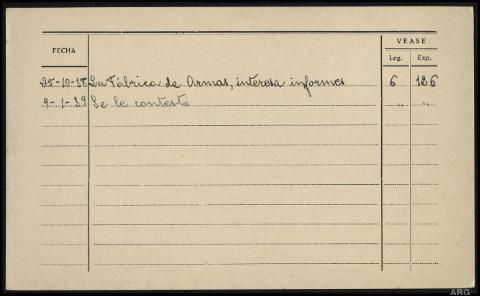 VEASE
FECHA
Leg. Exp.
25-10-38 La Fábrica de Armas, interesa informes 6 126
9-1-39 Se le contestó " "
ARG